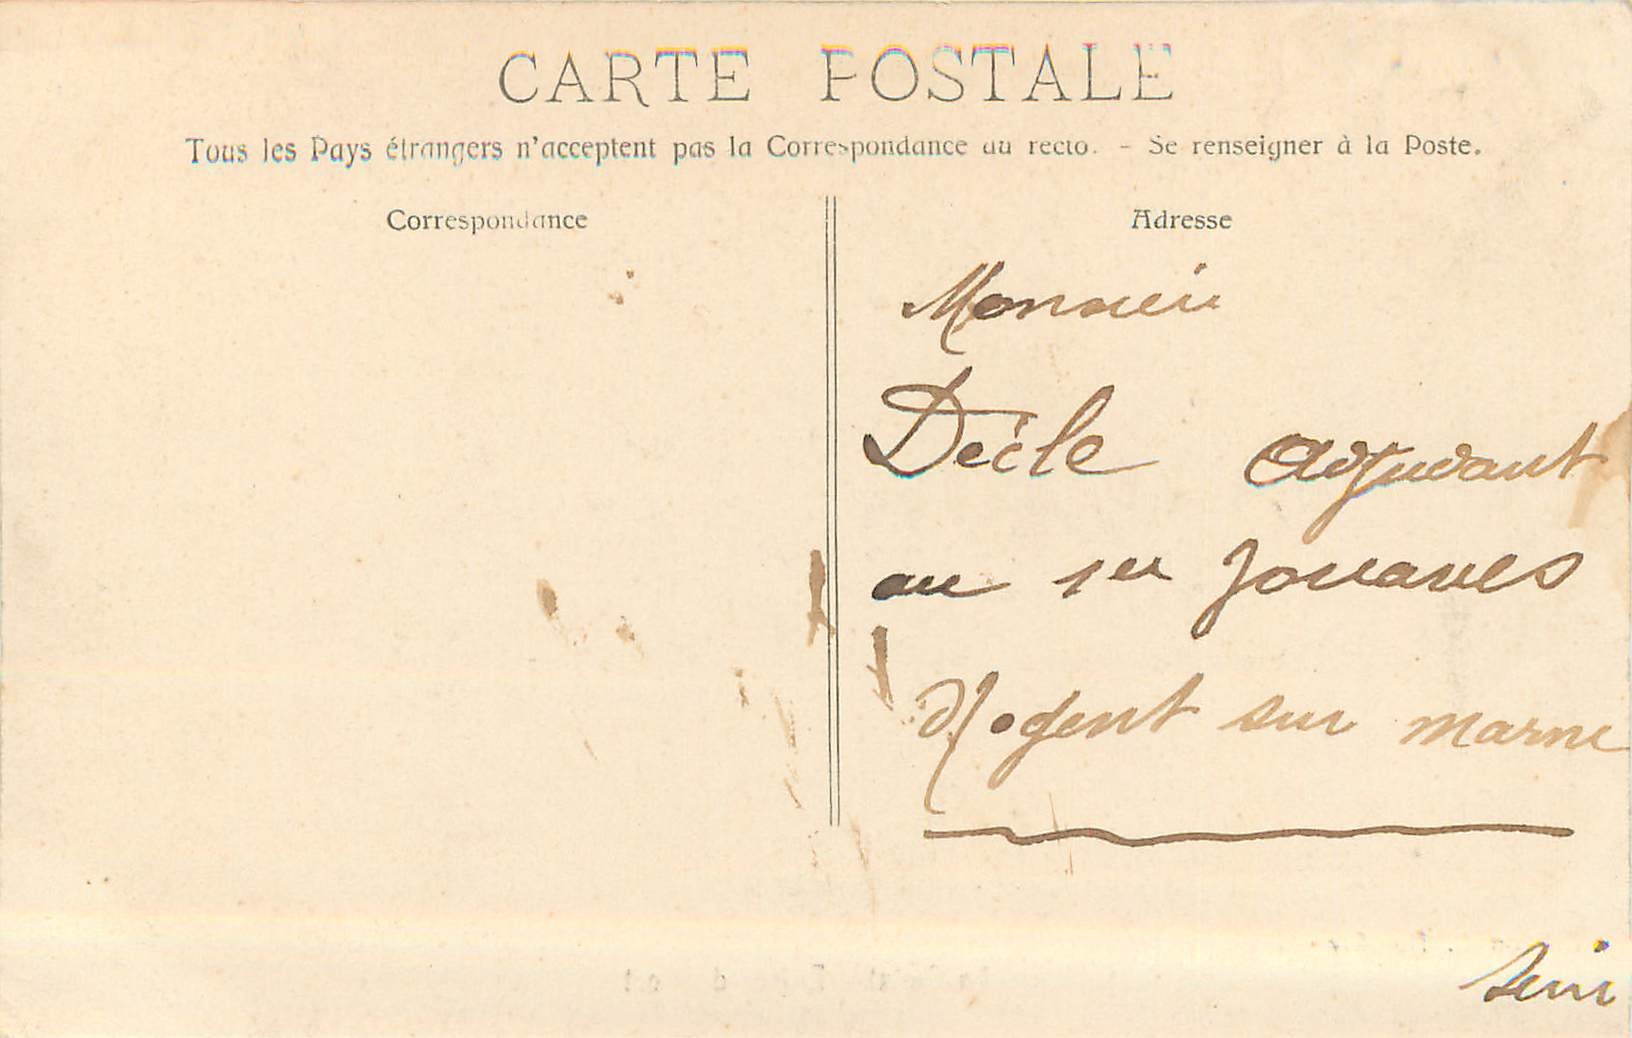 CARTE POSTALE
Tous les Pays étrangers n'acceptent pas la Correspondance au recto. - Se renseigner à la Poste.
Correspondance
Adresse
Monsieur
Dècle adjudant
au 1er Zouaves
Nogent sur marne
Seine